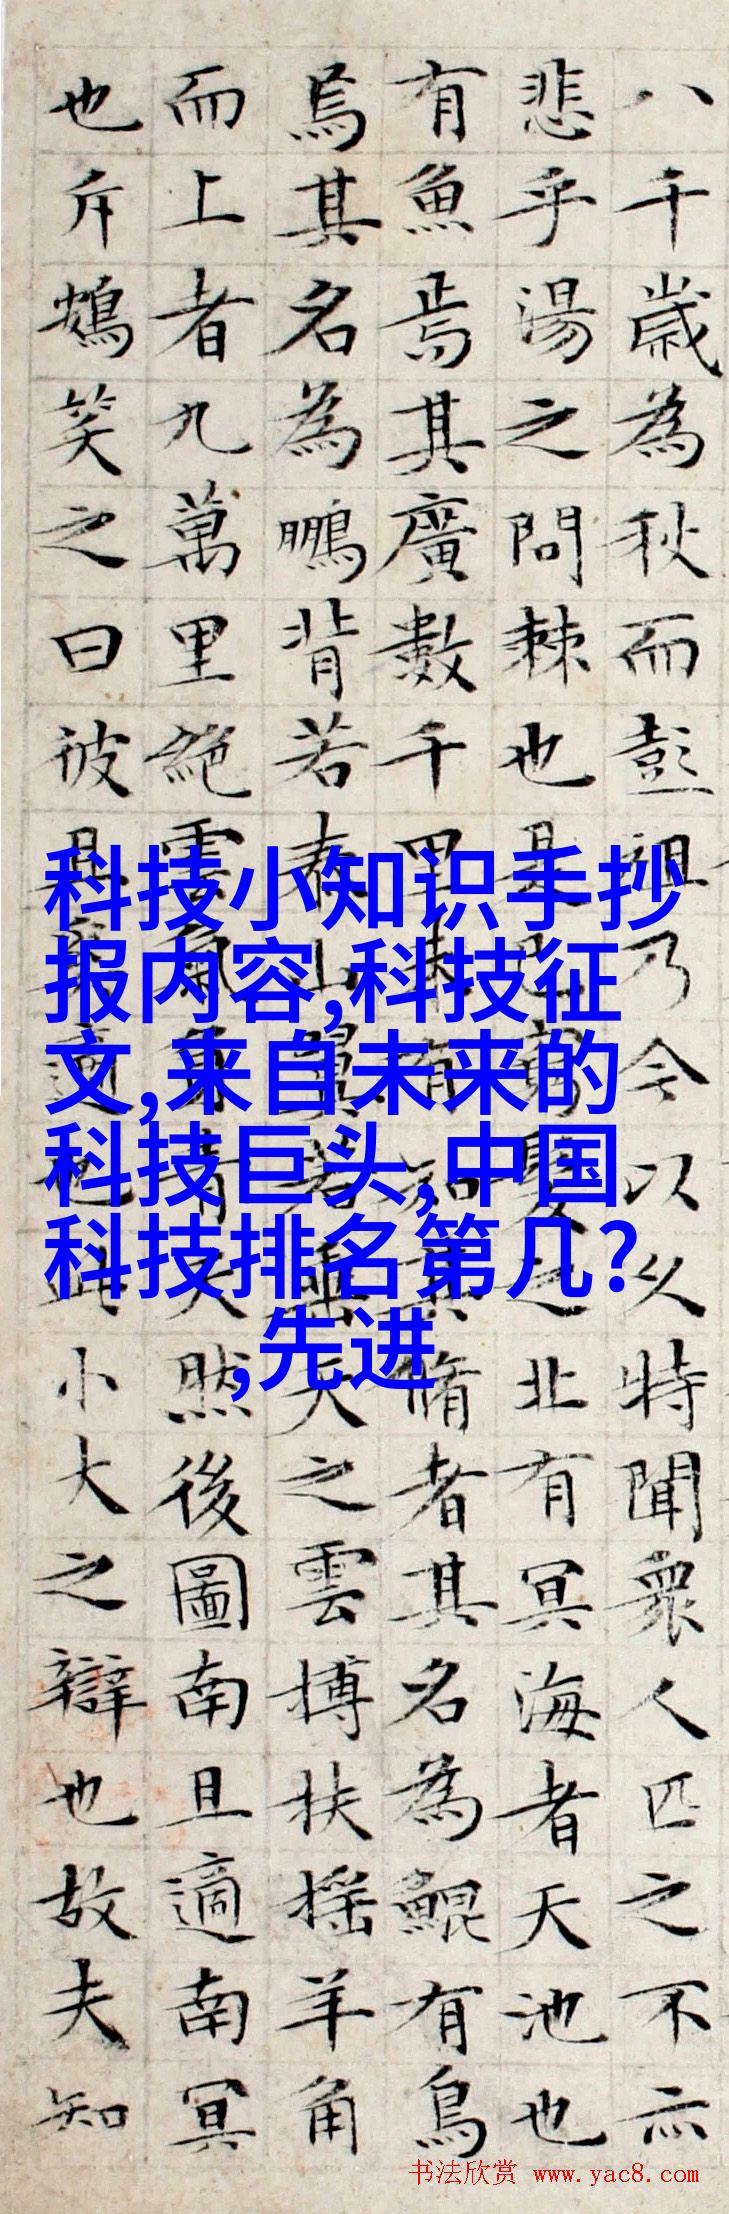 八千歲為秋而彭祖乃今以久特聞衆人匹之不亦
悲乎湯之問棘也是已窮髮之北有冥海者天池也
有魚焉其廣數千里未有知其脩者其名為鯤有鳥
焉其名為鵬背若泰山翼若垂天之雲搏扶摇羊角
而上者九萬里絶雲氣負青天然後圖南且適南冥
也斥鴳笑之曰彼且奚適也此小大之辯也故夫知
科技小知识手抄
报内容,科技征
文,来自未来的
科技巨头,中国
科技排名第几?
,先进
书法欣赏 www.yac8.com